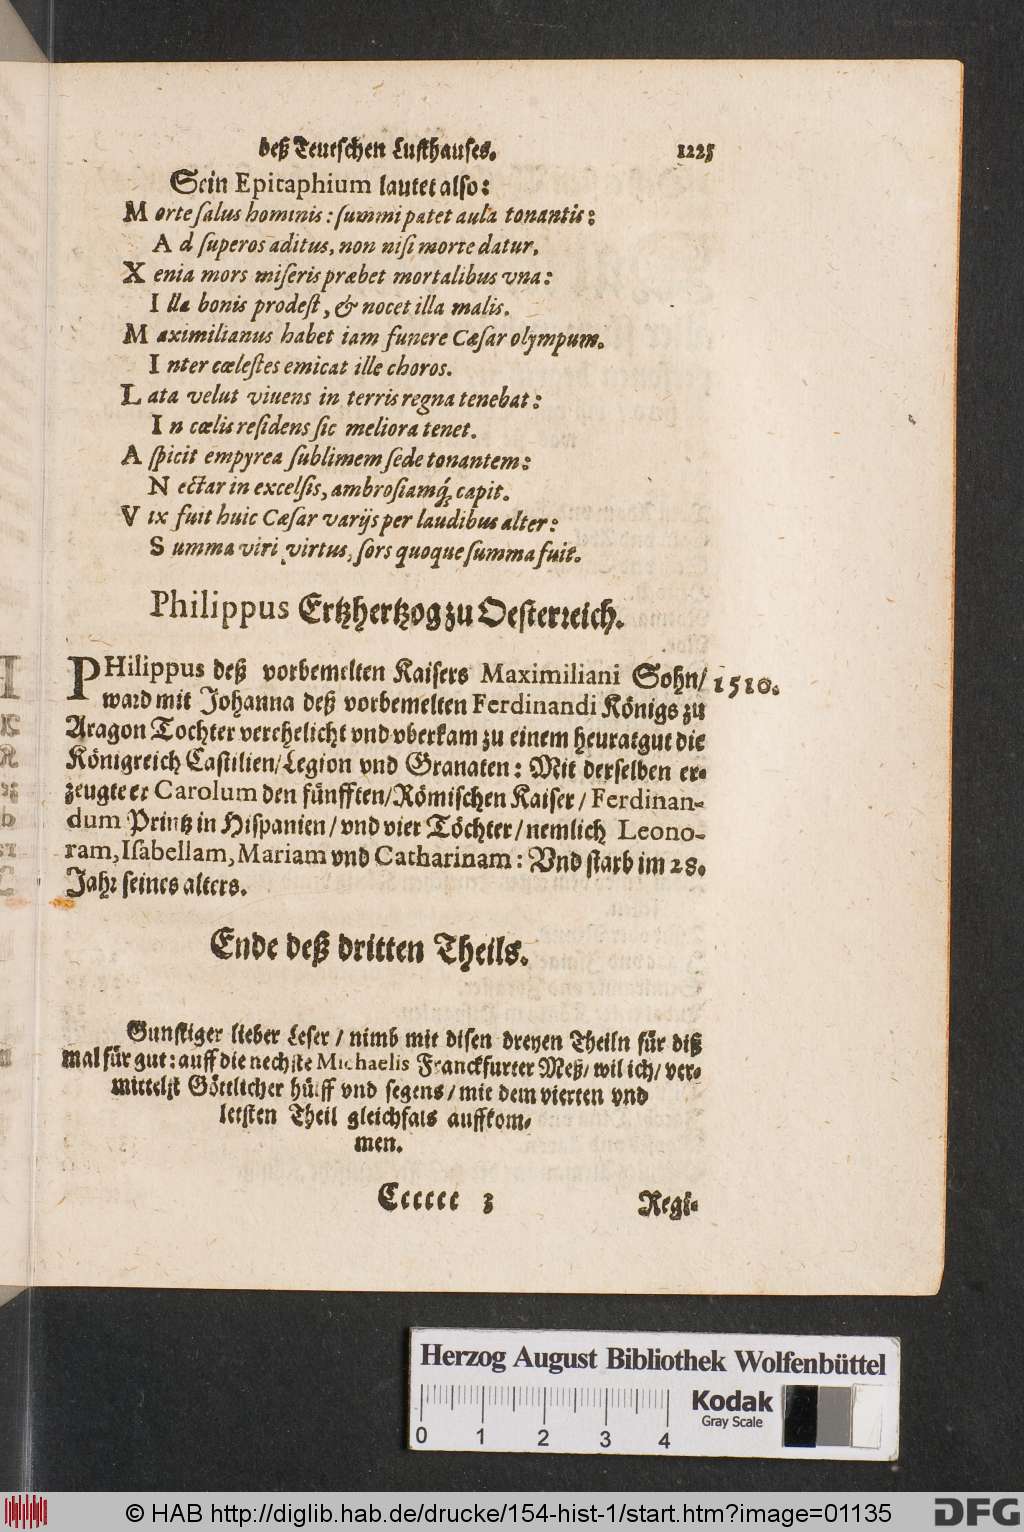 deß Teutschen Lusthauses. 1225
Sein Epitaphium lautet also:
Morte salus hominis: summi patet aula tonantis:
Ad superos aditus, non nisi morte datur.
Xenia mors miseris præbet mortalibus vna:
Illa bonis prodest, & nocet illa malis.
Maximilianus habet iam funere Cæsar olympum.
Inter cœlestes emicat ille choros.
Lata velut viuens in terris regna tenebat:
In cœlis residens sic meliora tenet.
Aspicit empyrea sublimem sede tonantem:
Nectar in excelsis, ambrosiamq́; capit.
Vix fuit huic Cæsar varijs per laudibus alter:
Summa viri virtus, sors quoque summa fuit.
Philippus Ertzhertzog zu Oesterreich.
PHilippus deß vorbemelten Kaisers Maximiliani Sohn/ 1510.
ward mit Johanna deß vorbemelten Ferdinandi Königs zu
Aragon Tochter verehelicht vnd vberkam zu einem heuratgut die
Königreich Castilien/ Legion vnd Granaten: Mit derselben er-
zeugte er Carolum den fünfften/ Römischen Kaiser/ Ferdinan-
dum Printz in Hispanien/ vnd vier Töchter/ nemlich Leono-
ram, Isabellam, Mariam vnd Catharinam: Vnd starb im 28.
Jahr seines alters.
Ende deß dritten Theils.
Gunstiger lieber Leser/ nimb mit disen dreyen Theiln für diß
mal für gut: auff die nechste Michaelis Franckfurter Meß/ wil ich/ ver-
mittelst Göttlicher hülff vnd segens/ mit dem vierten vnd
letsten Theil gleichfals auffkom-
men.
Cccccc 3 Regi-
Herzog August Bibliothek Wolfenbüttel
Kodak
Gray Scale
0 1 2 3 4
© HAB http://diglib.hab.de/drucke/154-hist-1/start.htm?image=01135 DFG